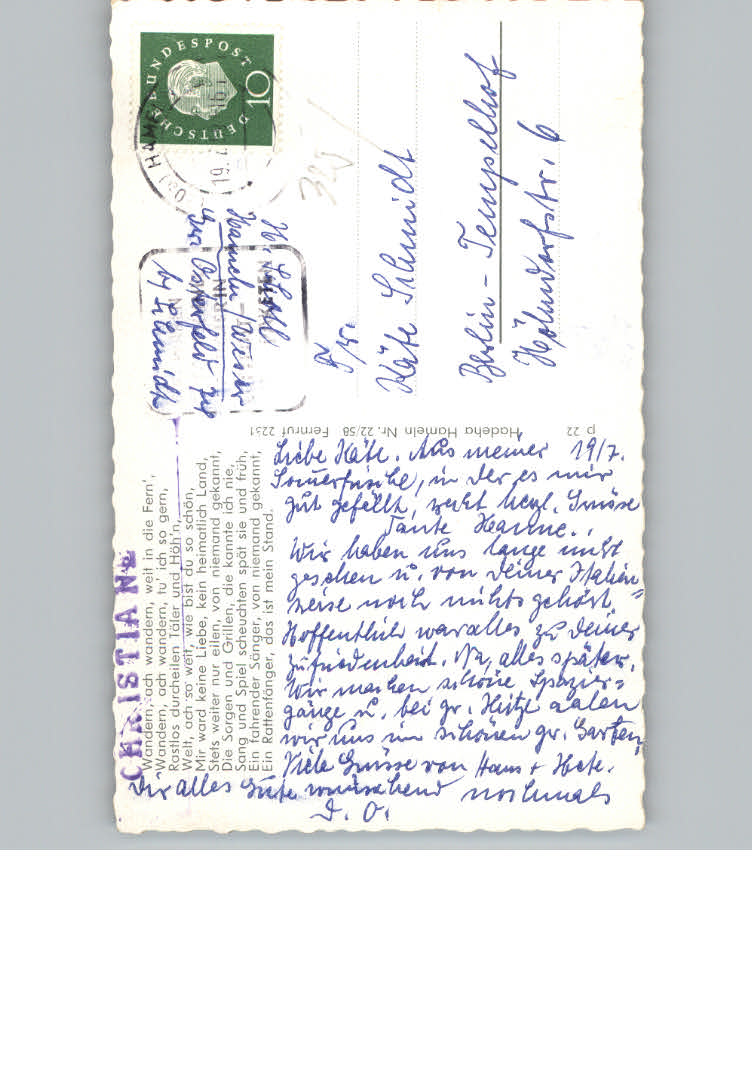 DEUTSCHE BUNDESPOST
10
HAME
19.7
320
H.
Hameln/Weser
Ostenfeld
b/ Schmidt
Fr.
Käte Schmidt
Berlin - Tempelhof
Str. 6
p 22 Hadeha Hameln Nr. 22/58 Fernruf 2231
CHRISTIANE
Wandern, ach wandern, weit in die Fern',
Wandern, ach wandern, tu' ich so gern,
Rastlos durcheilen Täler und Höh'n,
Welt, ach so weit, wie bist du so schön,
Mir ward keine Liebe, kein heimatlich Land,
Stets weiter nur eilen, von niemand gekannt,
Die Sorgen und Grillen, die kannte ich nie,
Sang und Spiel scheuchten spät sie und früh,
Ein fahrender Sänger, von niemand gekannt,
Ein Rattenfänger, das ist mein Stand.
Liebe Käte. Aus meiner 19/7.
Sommerfrische, in der es mir
gut gefällt, recht herzl. Grüsse
Tante Hanne.
Wir haben uns lange nicht
gesehen u. von Deiner Italien=
reise noch nichts gehört.
Hoffentlich war alles zu Deiner
Zufriedenheit. Na, alles später.
Wir machen schöne Spazier=
gänge u. bei gr. Hitze aalen
wir uns im schönen gr. Garten.
Viele Grüsse von Hans +
Dir alles Gute wünschend nochmals
D. O.